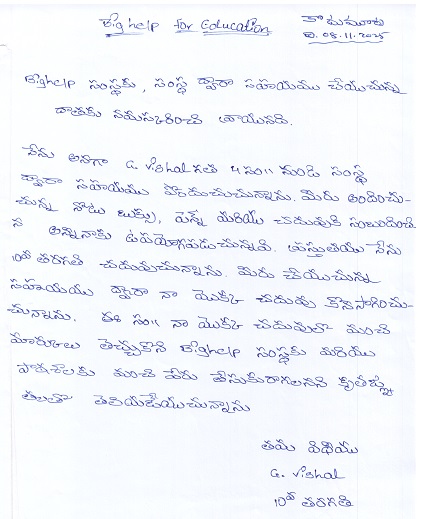 Big help for Education
కొమ్మూరు
ది. 08.11.2025
Bighelp సంస్థకు, సంస్థ ద్వారా సహాయము చేయుచున్న
దాతకు నమస్కరించి వ్రాయునది.
నేను అనగా G. Vishal గత 4 సం॥ నుండి సంస్థ
ద్వారా సహాయము పొందుచున్నాను. మీరు అందించు-
చున్న నోటు బుక్సు, పెన్స్ మరియు చదువుకి సంబంధించి
న అన్నీ నాకు ఉపయోగపడుచున్నవి. ప్రస్తుతము నేను
10వ తరగతి చదువుచున్నాను. మీరు చేయుచున్న
సహాయము ద్వారా నా యొక్క చదువు కొనసాగించు-
చున్నాను. ఈ సం॥ నా యొక్క చదువులో మంచి
మార్కులు తెచ్చుకొని Bighelp సంస్థకు మరియు
పాఠశాలకు మంచి పేరు తీసుకురాగలనని కృతజ్ఞ-
తలతో తెలియజేయుచున్నాను
తమ విధేయు
G. Vishal
10వ తరగతి